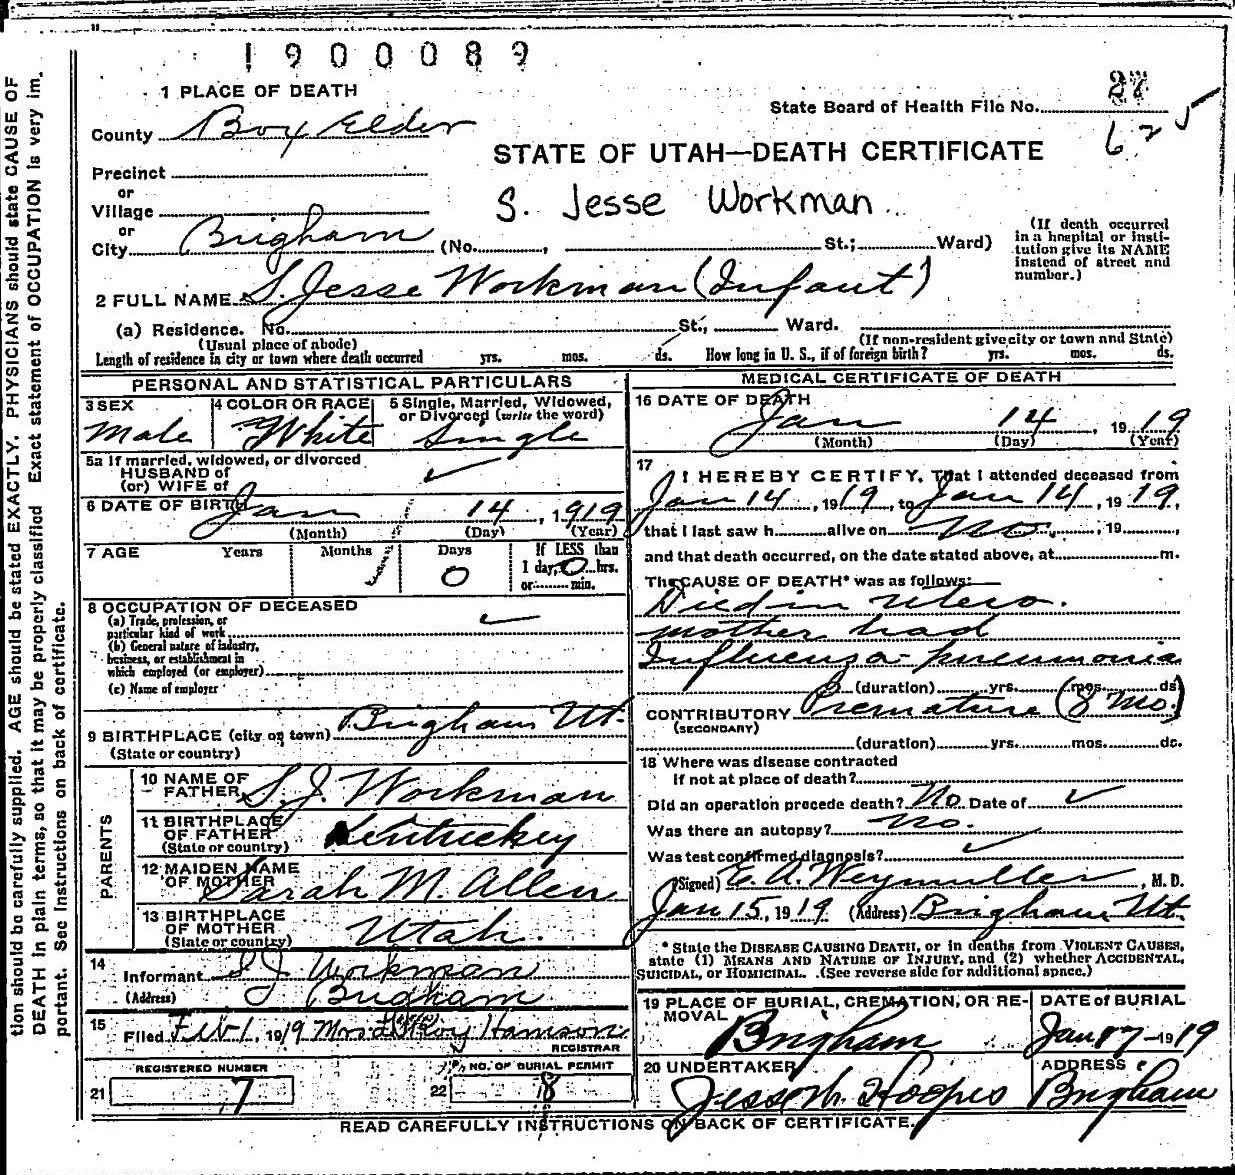 1900089
1 PLACE OF DEATH
State Board of Health File No. 27
County Box Elder
625
STATE OF UTAH—DEATH CERTIFICATE
Precinct
or
Village
S. Jesse Workman
or
City Brigham (No. , St.; Ward)
(If death occurred in a hospital or institution give its NAME instead of street and number.)
2 FULL NAME S. Jesse Workman (Infant)
(a) Residence. No. St., Ward.
(Usual place of abode) (If non-resident give city or town and State)
Length of residence in city or town where death occurred yrs. mos. ds. How long in U. S., if of foreign birth? yrs. mos. ds.
PERSONAL AND STATISTICAL PARTICULARS
3 SEX 4 COLOR OR RACE 5 Single, Married, Widowed, or Divorced (write the word)
Male White Single
5a If married, widowed, or divorced
HUSBAND of
(or) WIFE of
6 DATE OF BIRTH Jan 14, 1919
(Month) (Day) (Year)
7 AGE Years Months Days If LESS than
0 1 day, 0 hrs.
or min.
8 OCCUPATION OF DECEASED
(a) Trade, profession, or
particular kind of work
(b) General nature of industry,
business, or establishment in
which employed (or employer)
(c) Name of employer
9 BIRTHPLACE (city or town) Brigham Ut.
(State or country)
PARENTS
10 NAME OF FATHER S. J. Workman
11 BIRTHPLACE OF FATHER Kentuckey
(State or country)
12 MAIDEN NAME OF MOTHER Sarah M. Allen
13 BIRTHPLACE OF MOTHER Utah.
(State or country)
14
Informant S J Workman
(Address) Brigham
15
Filed Feb 1, 1919
REGISTRAR
REGISTERED NUMBER
21 7
NO. OF BURIAL PERMIT
22 8
MEDICAL CERTIFICATE OF DEATH
16 DATE OF DEATH
Jan 14, 1919
(Month) (Day) (Year)
17
I HEREBY CERTIFY, That I attended deceased from
Jan 14, 1919, to Jan 14, 1919,
that I last saw h alive on No. , 19 ,
and that death occurred, on the date stated above, at m.
The CAUSE OF DEATH* was as follows:
Died in utero.
mother had
Influenza-pneumonia
(duration) yrs. mos. ds.
CONTRIBUTORY Premature (8 mo.)
(SECONDARY)
(duration) yrs. mos. ds.
18 Where was disease contracted
if not at place of death?
Did an operation precede death? No Date of
Was there an autopsy? No.
Was test confirmed diagnosis?
(Signed) E. A. Weymuller, M. D.
Jan 15, 1919 (Address) Brigham Ut.
* State the DISEASE CAUSING DEATH, or in deaths from VIOLENT CAUSES,
state (1) MEANS AND NATURE OF INJURY, and (2) whether ACCIDENTAL,
SUICIDAL, or HOMICIDAL. (See reverse side for additional space.)
19 PLACE OF BURIAL, CREMATION, OR REMOVAL DATE of BURIAL
Brigham Jan 17-1919
20 UNDERTAKER ADDRESS
Jesse W. Hoopes Brigham
READ CAREFULLY INSTRUCTIONS ON BACK OF CERTIFICATE.
tion should be carefully supplied. AGE should be stated EXACTLY. PHYSICIANS should state CAUSE OF
DEATH in plain terms, so that it may be properly classified Exact statement of OCCUPATION is very im.
portant. See instructions on back of certificate.